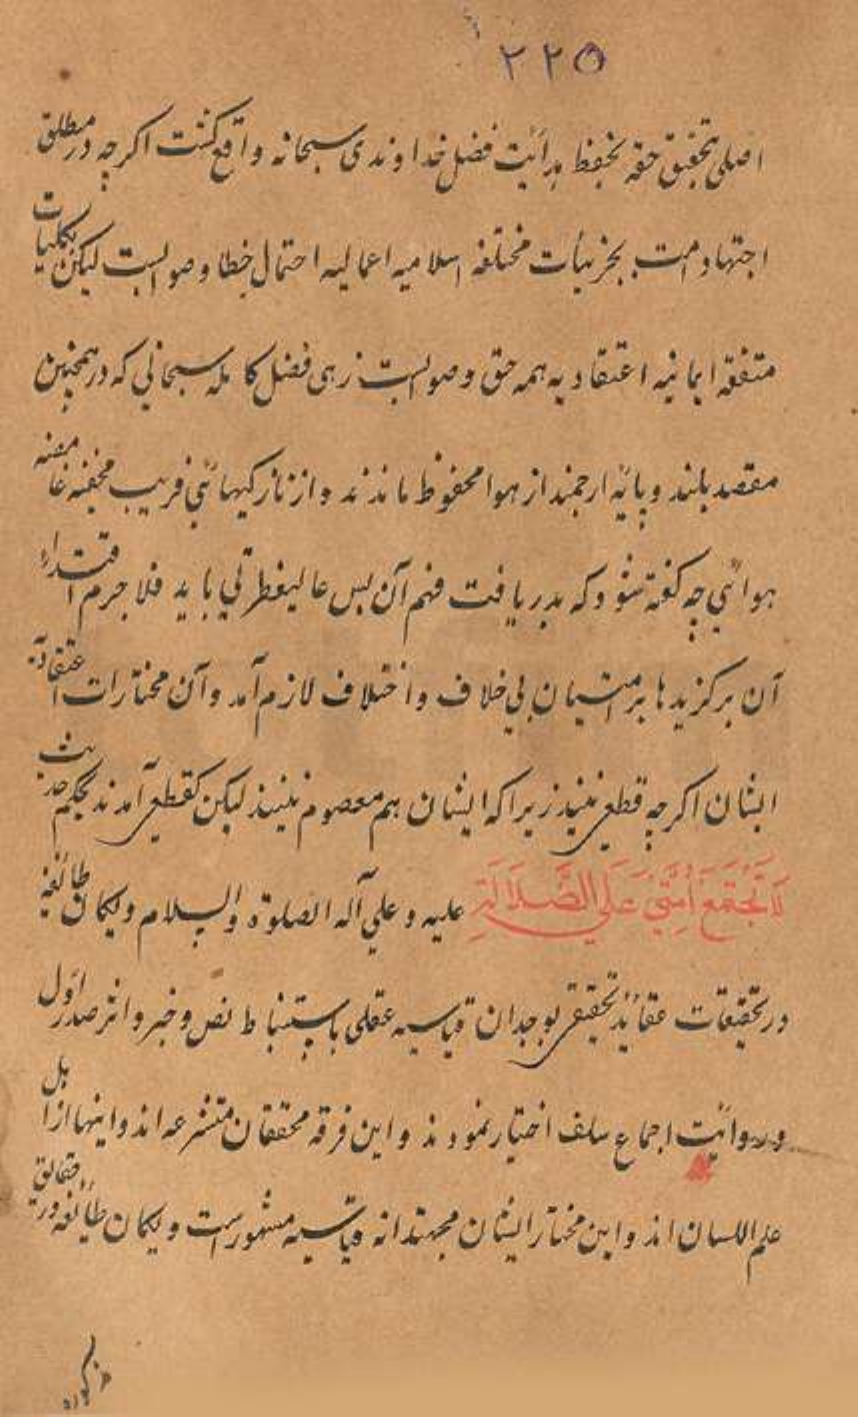 ۲۲۵
اصلی بتحقیق حقه بحفظ هدایت فضل خداوندی سبحانه واقع گشت اگرچه در مطلق
اجتهاد امت بجزئیات مختلفه اسلامیه اعمالیه احتمال خطا و صوابست لیکن بکلیات
متفقه ایمانیه اعتقادیه همه حق و صوابست زهی فضل کامله سبحانی که در همچنین
مقصد بلند و پایه ارجمند از هوا محفوظ ماندند و از نازکیهائی فریب مخفیه غامضه
هوائی چه گفته شود که بدریافت فهم آن بس عالیفطرتی باید فلاجرم اقتداء
آن برگزیدها بر امتیان بی خلاف و اختلاف لازم آمد و آن مختارات اعتقادیه
ایشان اگرچه قطعی نیند زیراکه ایشان هم معصوم نیند لیکن کقطعی آمدند بحکم حدیث
لَا تَجْتَمِعُ أُمَّتِي عَلَى الضَّلَالَةِ علیه و علی آله الصلوة والسلام و یکان طائفه
در تحقیقات عقائد تحقیقی بوجدان قیاسیه عقلی باستنباط نص و خبر و اثر صدر اول
و روایت اجماع سلف اختیار نمودند و این فرقه محققان متشرعه اند و اینها از اهل
علم اللسان اند و این مختار ایشان مجتهدانه قیاسیه مشهور است و یکان طائفه در حقائق